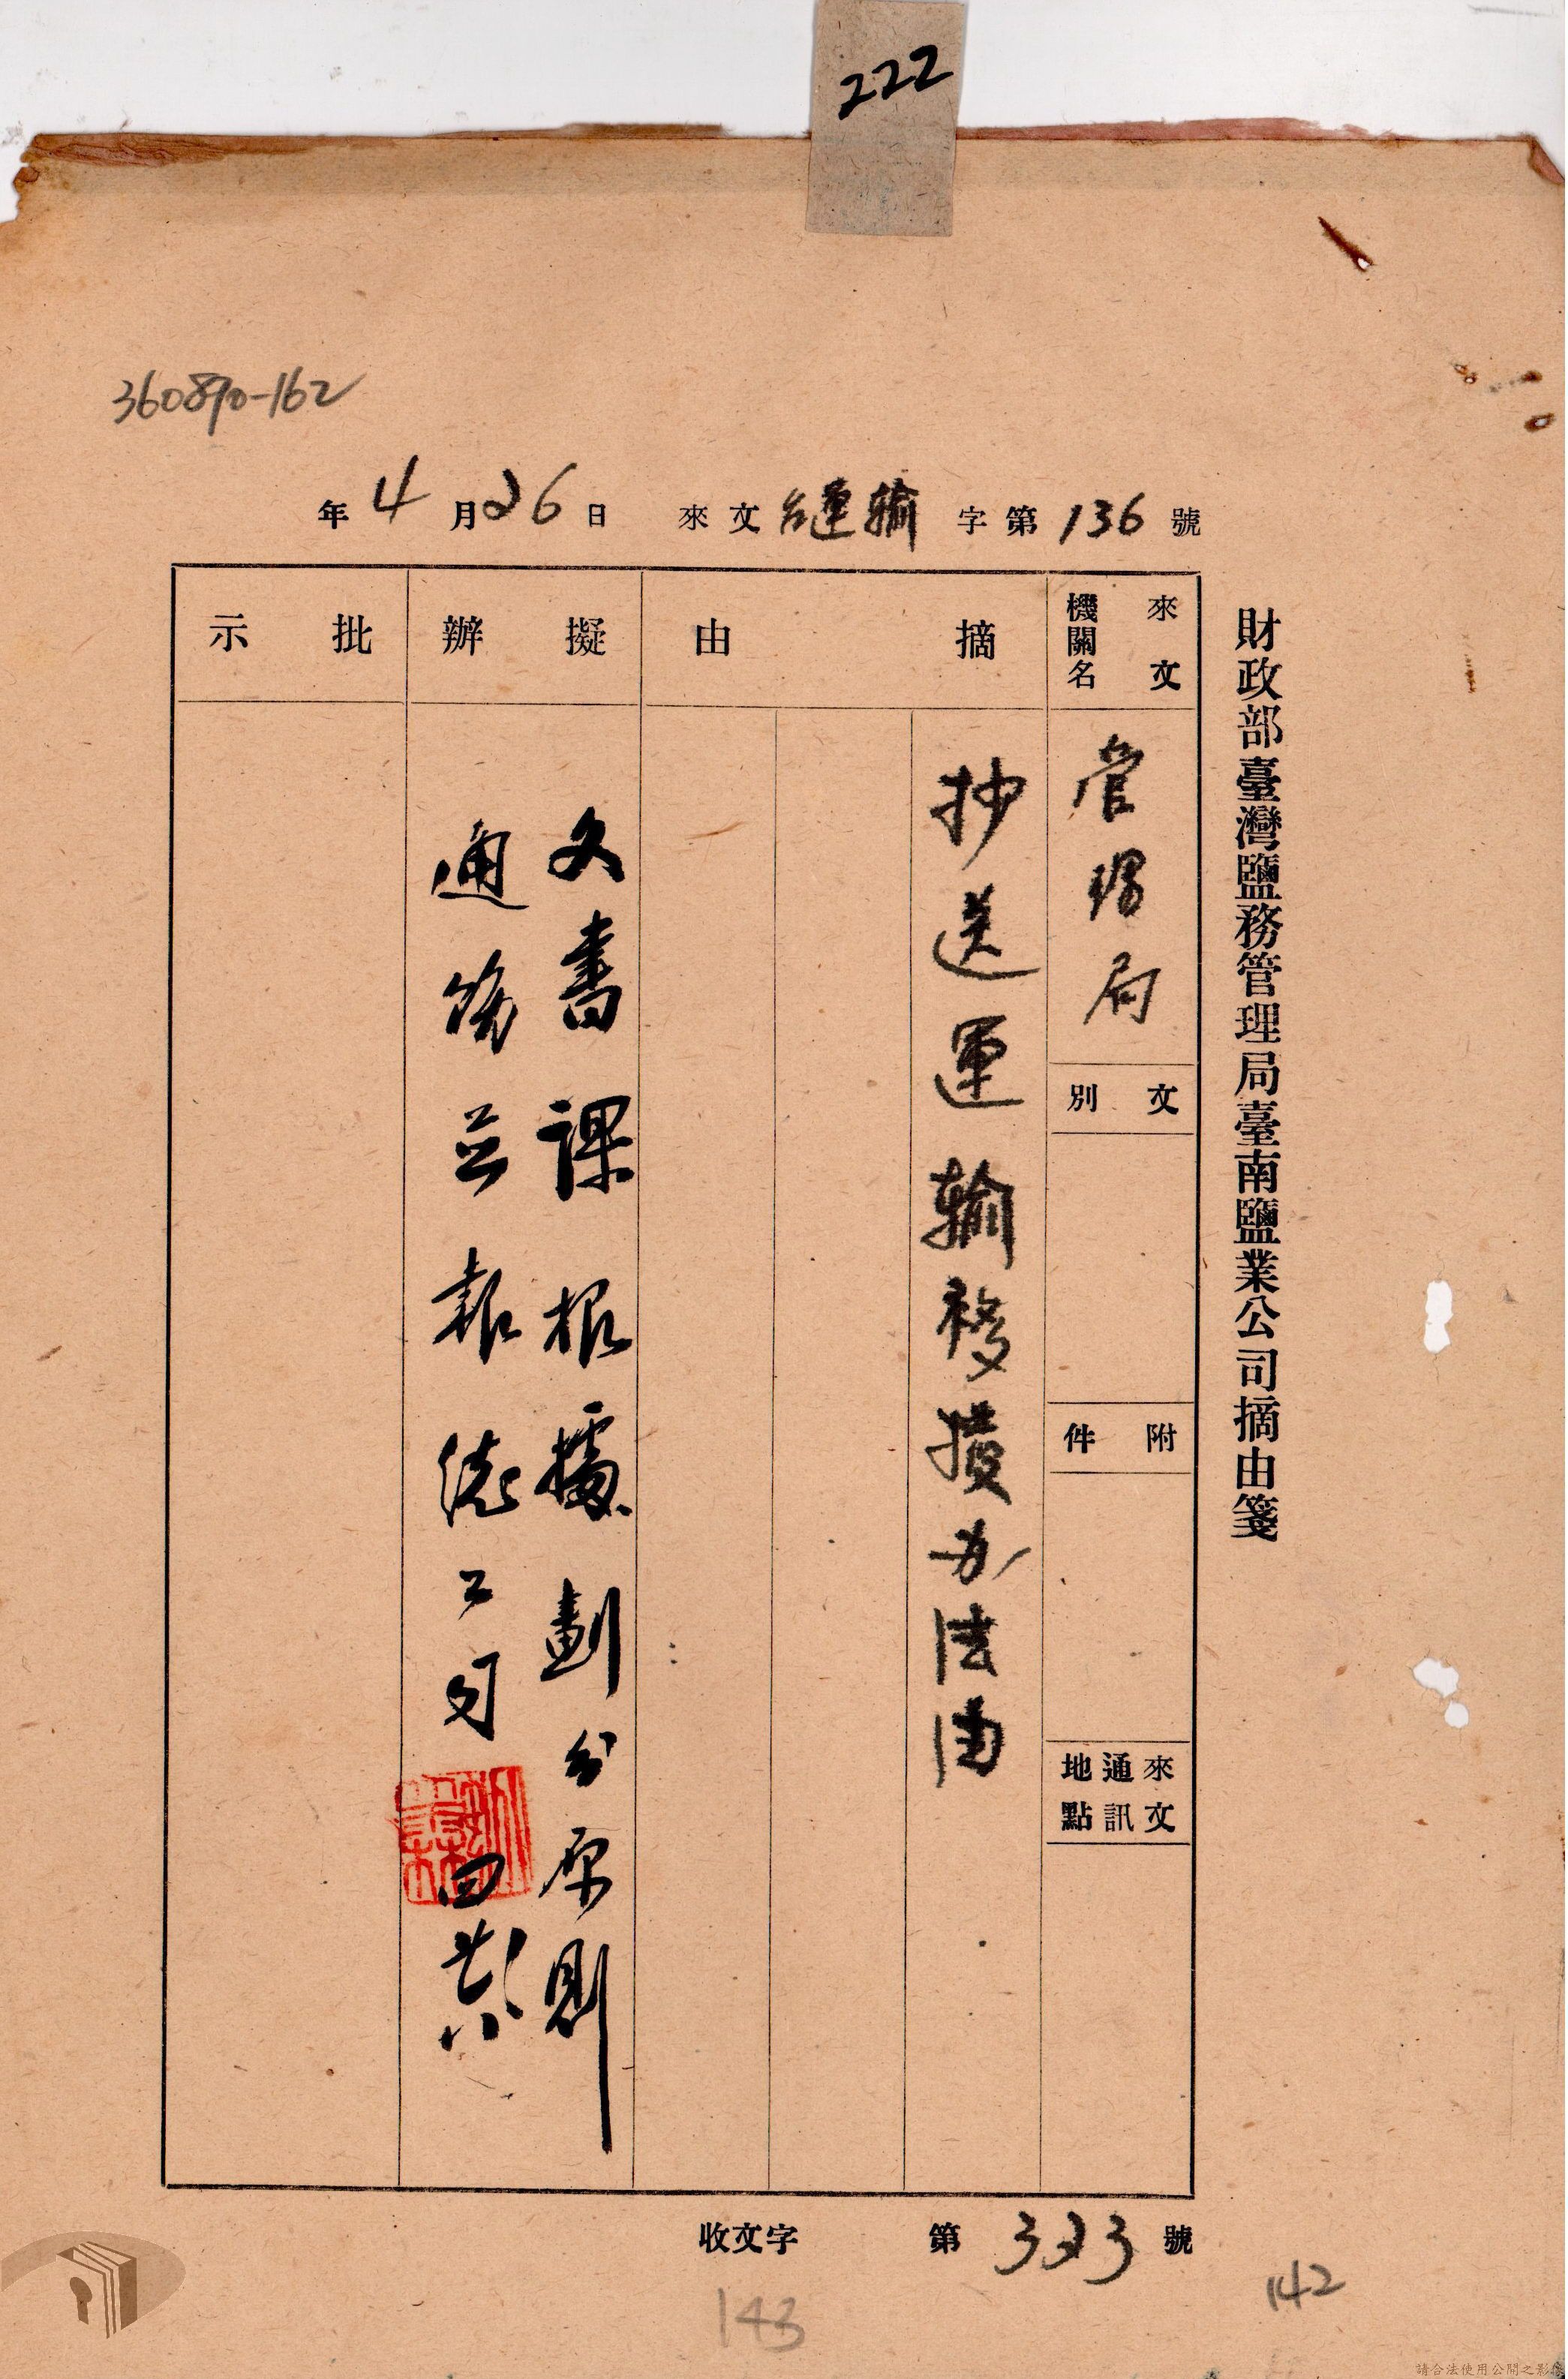 222
360890-162
年4月26日 來文台運輸字第136號
財政部臺灣鹽務管理局臺南鹽業公司摘由箋
來文機關名
管理局
文別
附件
來文通訊地點
摘由
抄送運輸移接办法由
擬辦
文書課根據劃分原則
通飭並報總公司
四 廿八
批示
收文字 第323號
142
143
請合法使用公開之影像